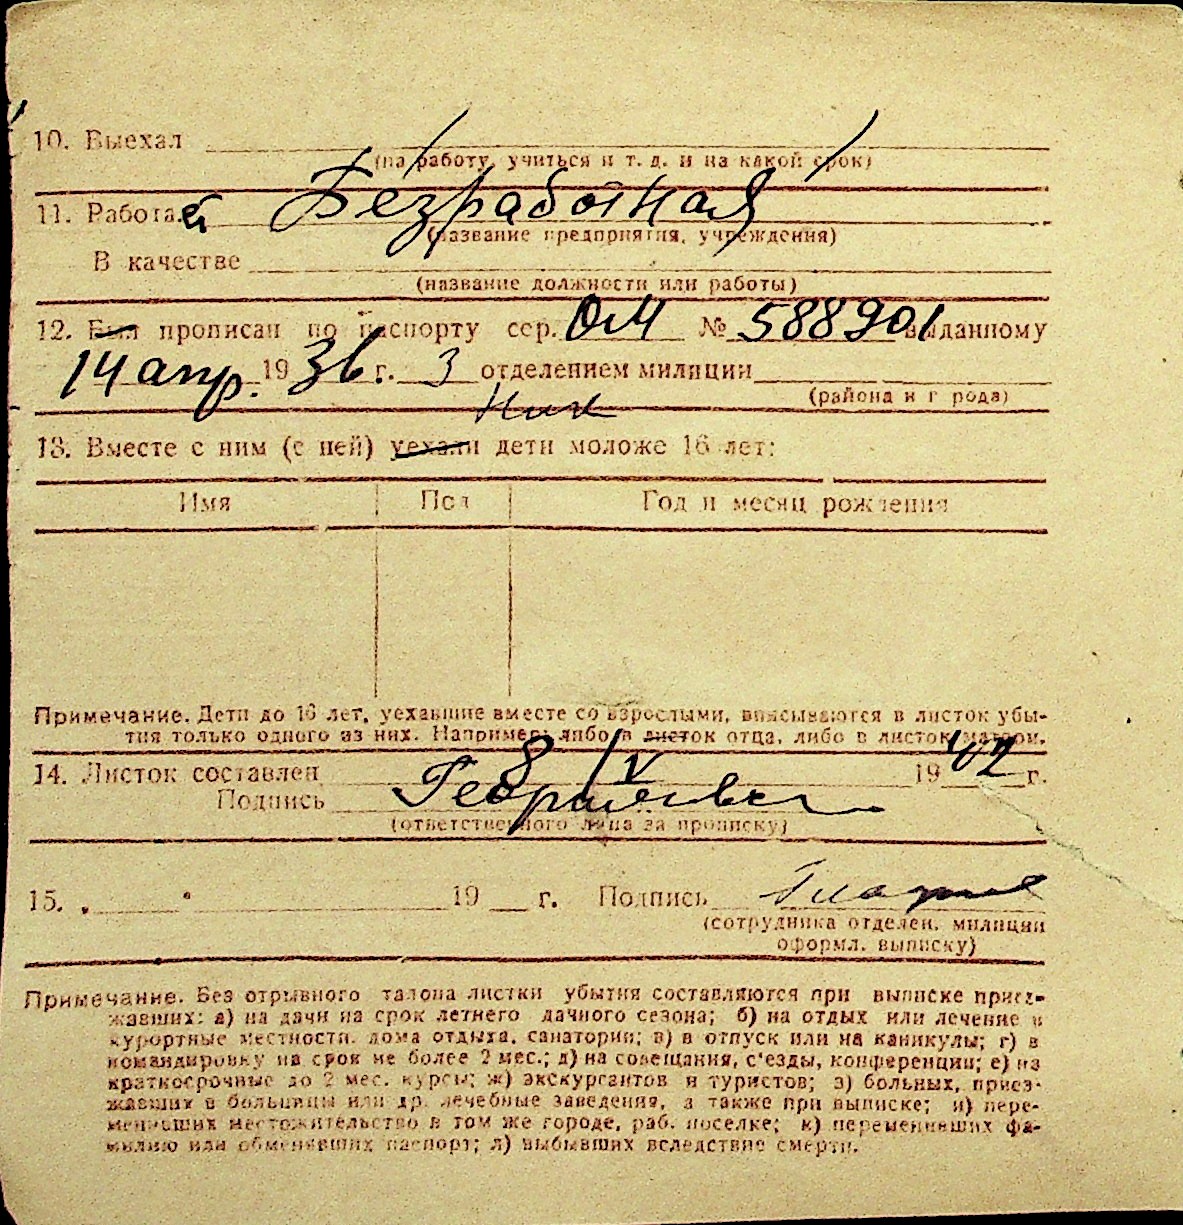 10. Выехал
(на работу, учиться и т. д. и на какой срок)
11. Работает Безработная
(название предприятия, учреждения)
В качестве
(название должности или работы)
12. Был прописан по паспорту сер. ОМ № 588901 выданному
14 апр. 19 36 г. 3 отделением милиции
(района и города)
13. Вместе с ним (с ней) уехали дети моложе 16 лет:
Имя Пол Год и месяц рождения
Примечание. Дети до 16 лет, уехавшие вместе со взрослыми, вписываются в листок убы-
тия только одного из них. Например либо в листок отца, либо в листок матери.
14. Листок составлен 8/V 19 42 г.
Подпись
(ответственного лица за прописку)
15. „ " 19 г. Подпись
(сотрудника отделен. милиции
оформл. выписку)
Примечание. Без отрывного талона листки убытия составляются при выписке приез-
жавших: а) на дачи на срок летнего дачного сезона; б) на отдых или лечение в
курортные местности, дома отдыха, санатории; в) в отпуск или на каникулы; г) в
командировку на срок не более 2 мес.; д) на совещания, с'езды, конференции; е) на
краткосрочные до 2 мес. курсы; ж) экскурсантов и туристов; з) больных, приез-
жавших в больницы или др. лечебные заведения, а также при выписке; и) пере-
менивших местожительство в том же городе, раб. поселке; к) переменивших фа-
милию или обменявших паспорт; л) выбывших вследствие смерти.